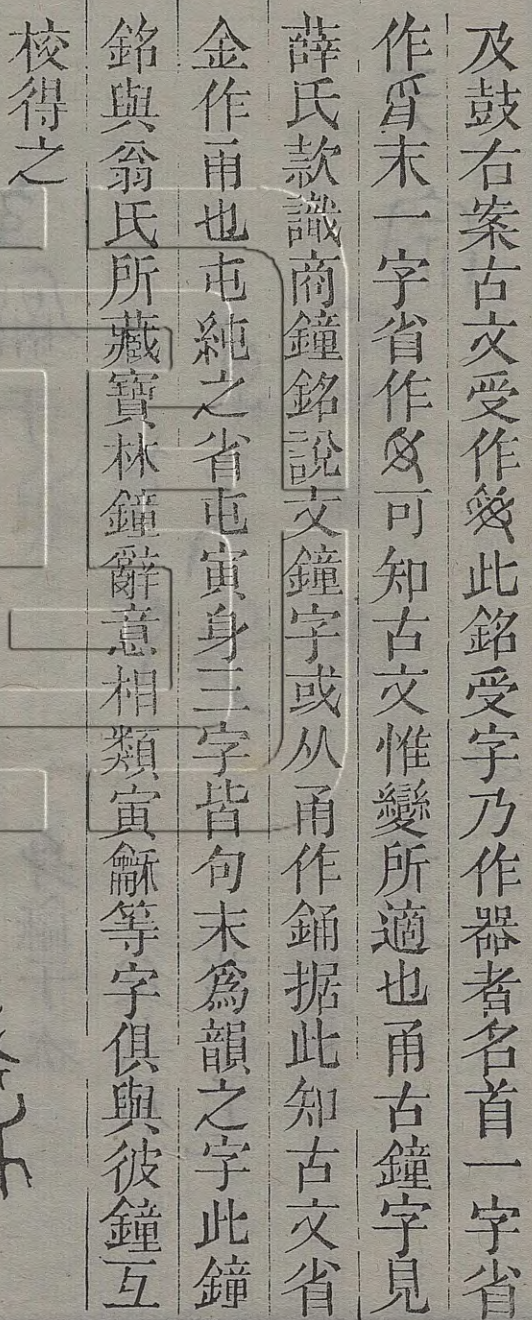 及鼓右案古文受作此銘受字乃作器者名首一字省
作末一字省作可知古文惟變所適也甬古鐘字見
薛氏款識商鐘銘說文鐘字或从甬作銿据此知古文省
金作甬也屯純之省屯寅身三字皆句末爲韻之字此鐘
銘與翁氏所藏寶林鐘辭意相類寅龢等字俱與彼鐘互
校得之